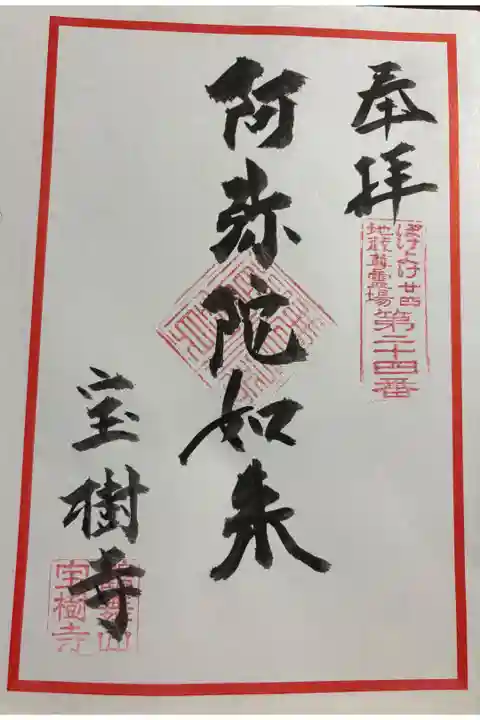 奉拝
ぼけよけ廿四
地蔵尊霊場
第二十四番
阿弥陀如来
宝樹寺
宝樹寺